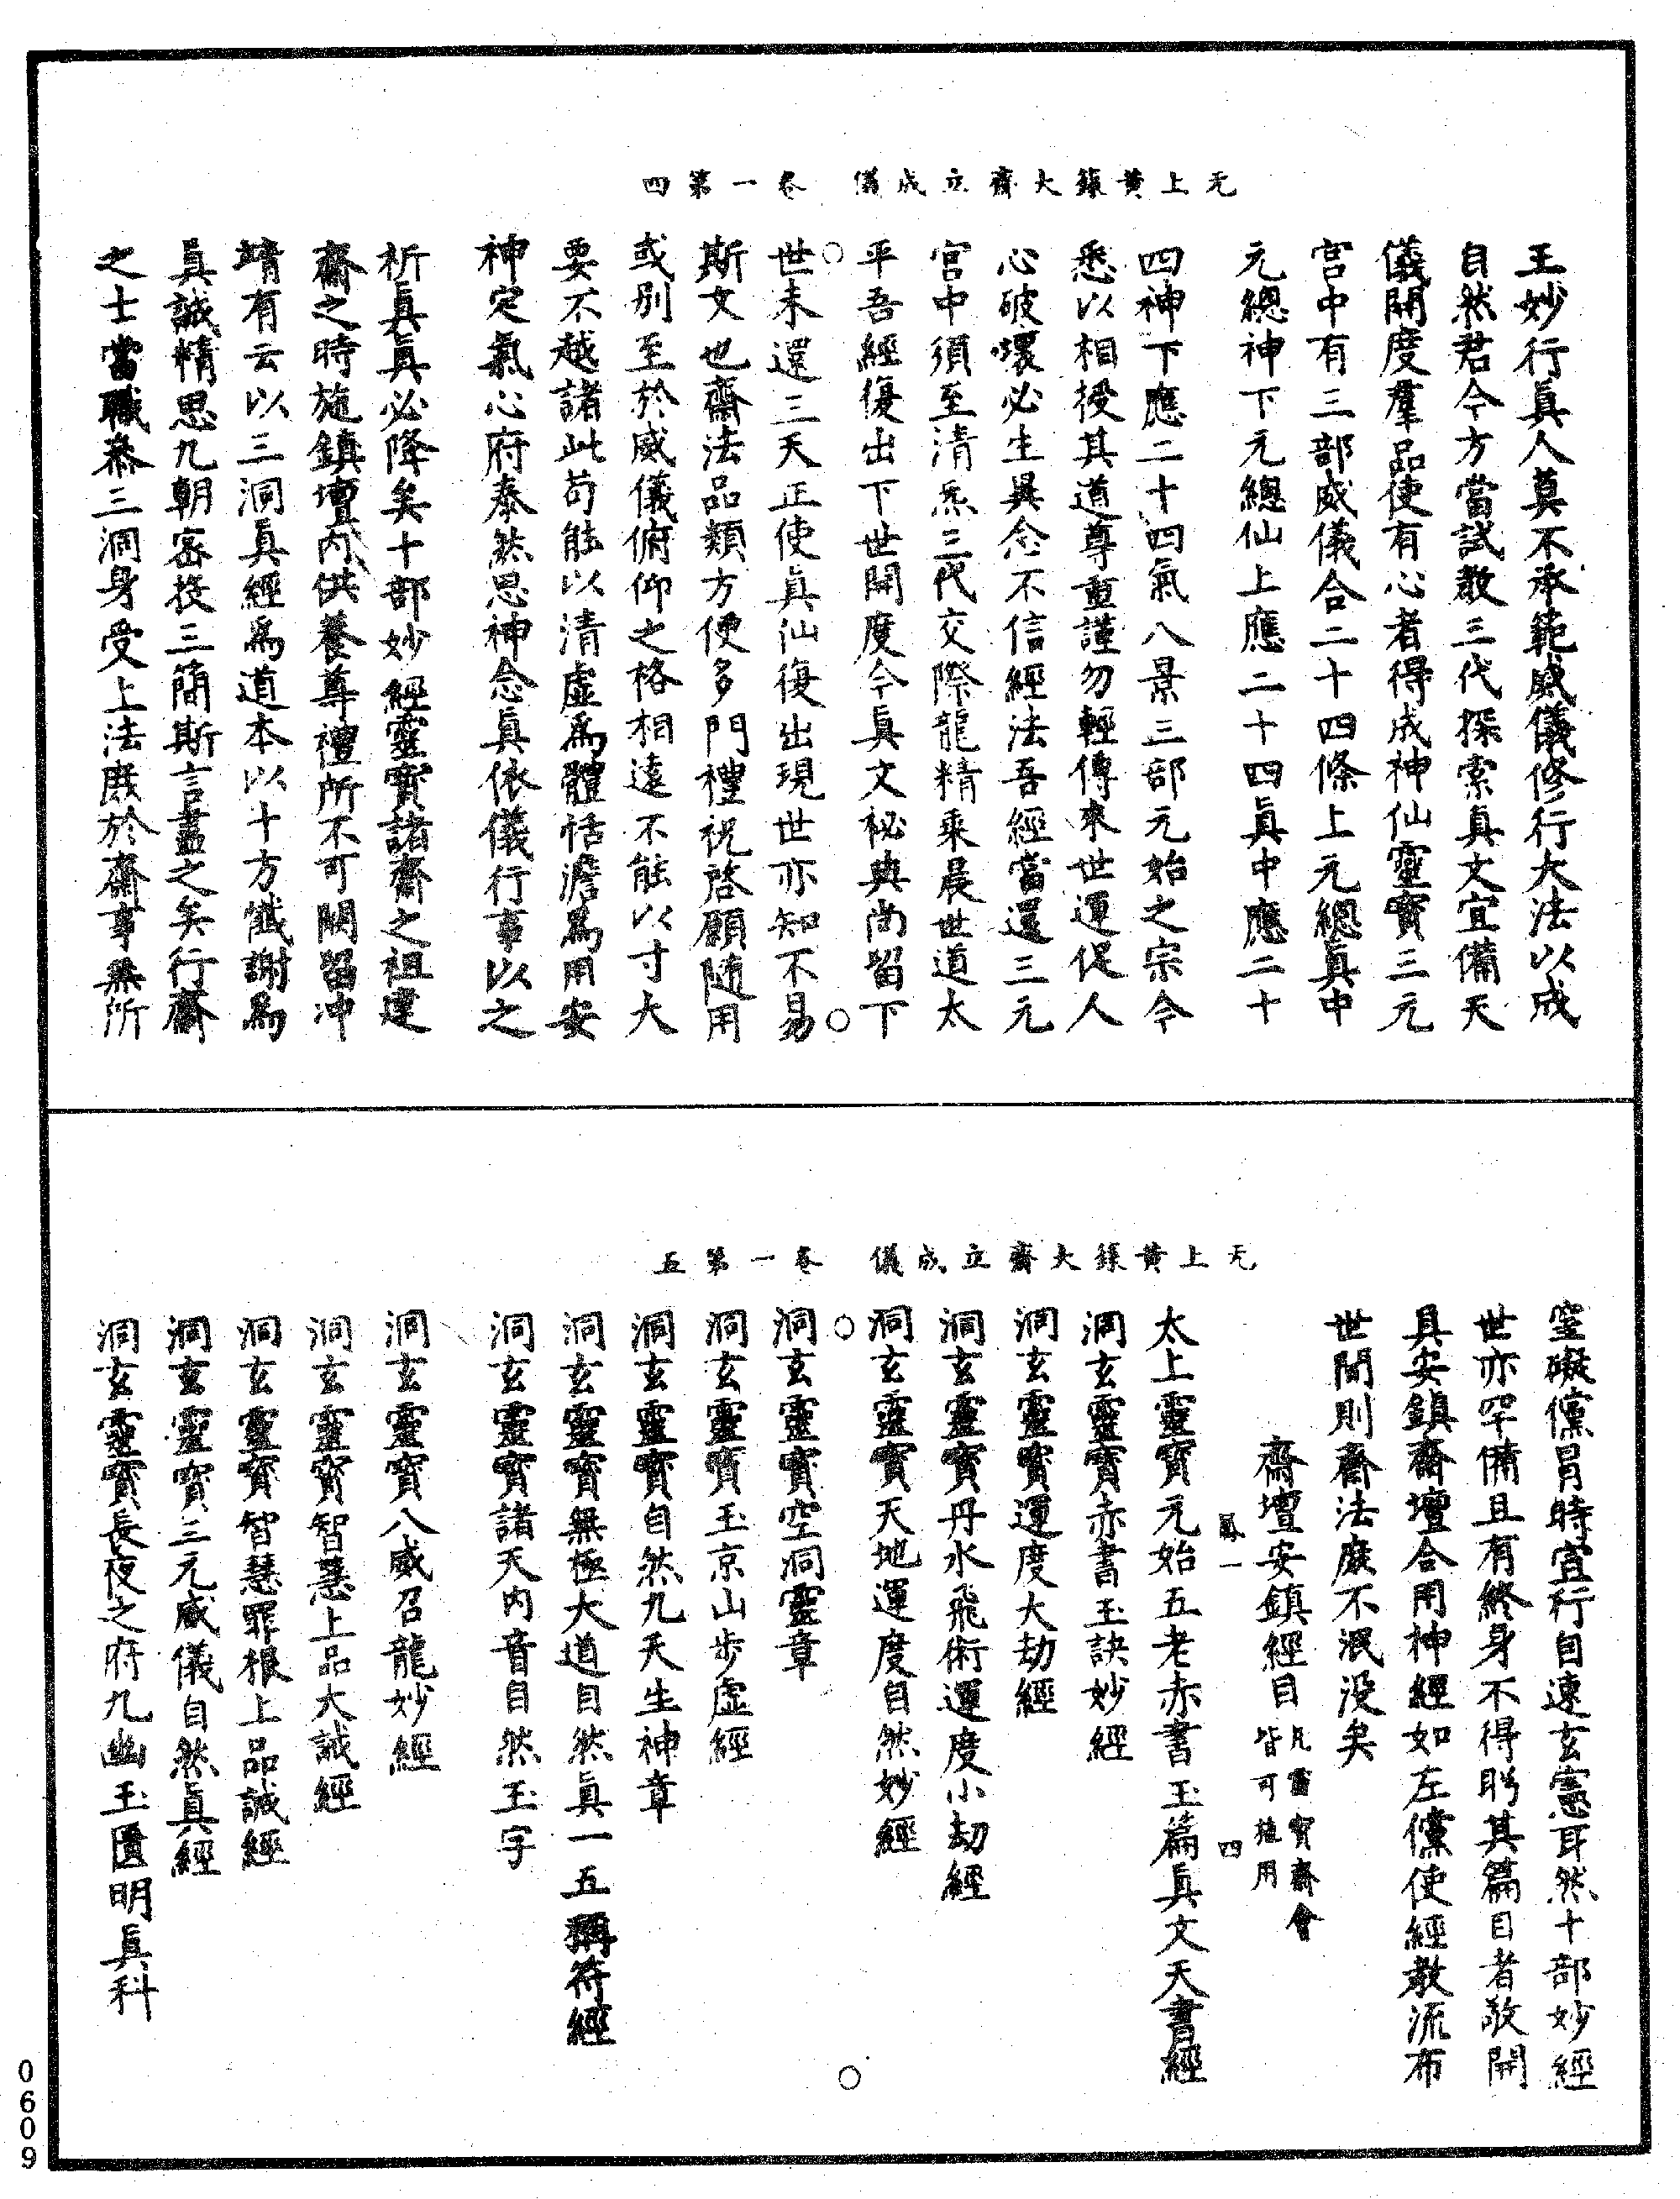 无上黃籙大齋立成儀 卷一第四
王妙行眞人莫不承範威儀修行大法以成
自然君今方當試教三代探索眞文宜備天
儀開度羣品使有心者得成神仙靈寳三元
宫中有三部威儀合二十四條上元總眞中
元總神下元總仙上應二十四眞中應二十
四神下應二十四氣八景三部元始之宗今
悉以相授其道尊重謹勿輕傳來世運促人
心破壞必生異念不信經法吾經當還三元
宫中須至清炁三代交際龍精乘晨世道太
平吾經復出下世開度今眞文袐典尚留下
世未還三天正使眞仙復出現世亦知不易
斯文也齋法品類方便多門禮祝啓願随用
或别至於威儀俯仰之格相遠不能以寸大
要不越諸此苟能以清虚爲體恬澹爲用安
神定氣心府泰然思神念眞依儀行事以之
祈眞眞必降矣十部妙經靈寳諸齋之祖建
齋之時施鎮壇内供養尊禮所不可闕留冲
靖有云以三洞眞經爲道本以十方懺謝爲
眞誠精思九朝密投三簡斯言盡之矣行齋
之士當職叅三洞身受上法庶於齋事無所
无上黃籙大齋立成儀 卷一第五
窒礙儻冒時宜行自速玄憲耳然十部妙經
世亦罕備且有終身不得聆其篇目者敬開
具安鎮齋壇合用神經如左儻使經教流布
世間則齋法庶不泯没矣
齋壇安鎮經目 凡靈寳齋會皆可推用
一 四
太上靈寳元始五老赤書玉篇眞文天書經
洞玄靈寳赤書玉訣妙經
洞玄靈寳運度大劫經
洞玄靈寳丹水飛術運度小劫經
洞玄靈寳天地運度自然妙經
洞玄靈寳空洞靈章
洞玄靈寳玉京山步虚經
洞玄靈寳自然九天生神章
洞玄靈寳無極大道自然眞一五稱符經
洞玄靈寳諸天内音自然玉字
洞玄靈寳八威召龍妙經
洞玄靈寳智慧上品大誡經
洞玄靈寳智慧罪根上品誡經
洞玄靈寳三元威儀自然眞經
洞玄靈寳長夜之府九幽玉匱明眞科
0609